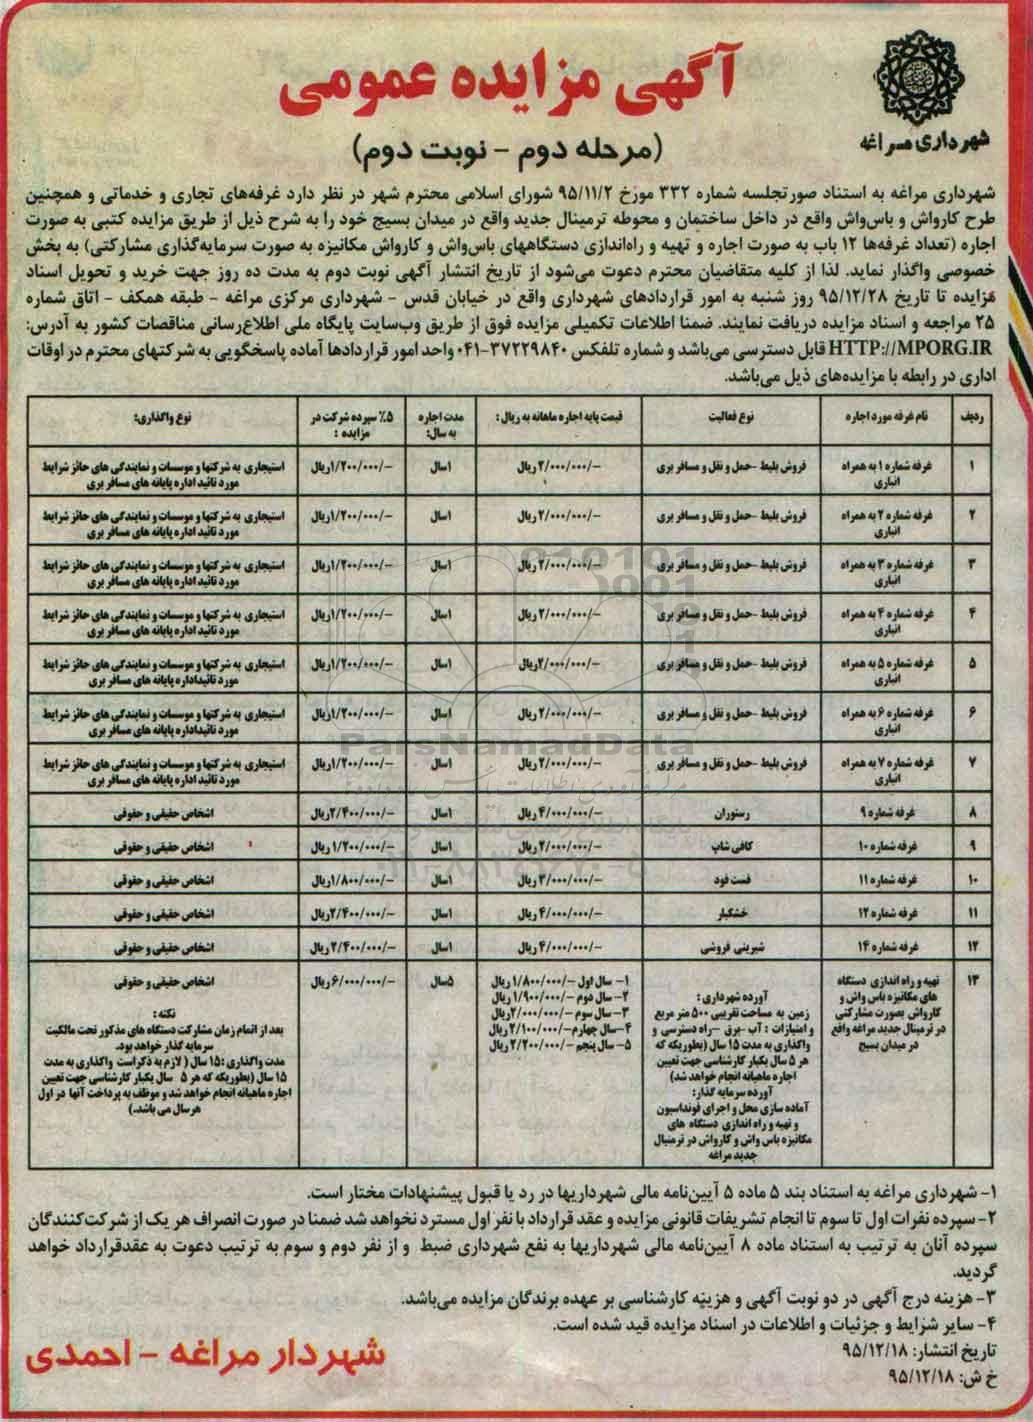 آگهی مزایده عمومی
شهرداری مراغه
(مرحله دوم - نوبت دوم)
شهرداری مراغه به استناد صورتجلسه شماره ۳۳۲ مورخ ۹۵/۱۱/۲ شورای اسلامی محترم شهر در نظر دارد غرفه‌های تجاری و خدماتی و همچنین
طرح کارواش و باس‌واش واقع در داخل ساختمان و محوطه ترمینال جدید واقع در میدان بسیج خود را به شرح ذیل از طریق مزایده کتبی به صورت
اجاره (تعداد غرفه‌ها ۱۲ باب به صورت اجاره و تهیه و راه‌اندازی دستگاههای باس‌واش و کارواش مکانیزه به صورت سرمایه‌گذاری مشارکتی) به بخش
خصوصی واگذار نماید. لذا از کلیه متقاضیان محترم دعوت می‌شود از تاریخ انتشار آگهی نوبت دوم به مدت ده روز جهت خرید و تحویل اسناد
مزایده تا تاریخ ۹۵/۱۲/۲۸ روز شنبه به امور قراردادهای شهرداری واقع در خیابان قدس - شهرداری مرکزی مراغه - طبقه همکف - اتاق شماره
۲۵ مراجعه و اسناد مزایده دریافت نمایند. ضمنا اطلاعات تکمیلی مزایده فوق از طریق وب‌سایت پایگاه ملی اطلاع‌رسانی مناقصات کشور به آدرس:
HTTP://MPORG.IR قابل دسترسی می‌باشد و شماره تلفکس ۳۷۲۲۹۸۴۰-۰۴۱ واحد امور قراردادها آماده پاسخگویی به شرکتهای محترم در اوقات
اداری در رابطه با مزایده‌های ذیل می‌باشد.
ردیف | نام غرفه مورد اجاره | نوع فعالیت | قیمت پایه اجاره ماهانه به ریال : | مدت اجاره به سال: | ۵٪ سپرده شرکت در مزایده : | نوع واگذاری:
۱ | غرفه شماره ۱ به همراه انباری | فروش بلیط -حمل و نقل و مسافر بری | ۲/۰۰۰/۰۰۰/- ریال | ۱سال | ۱/۲۰۰/۰۰۰/-ریال | استیجاری به شرکتها و موسسات و نمایندگی های حائز شرایط مورد تائید اداره پایانه های مسافر بری
۲ | غرفه شماره ۲ به همراه انباری | فروش بلیط -حمل و نقل و مسافر بری | ۲/۰۰۰/۰۰۰/- ریال | ۱سال | ۱/۲۰۰/۰۰۰/-ریال | استیجاری به شرکتها و موسسات و نمایندگی های حائز شرایط مورد تائید اداره پایانه های مسافر بری
۳ | غرفه شماره ۳ به همراه انباری | فروش بلیط -حمل و نقل و مسافر بری | ۲/۰۰۰/۰۰۰/- ریال | ۱سال | ۱/۲۰۰/۰۰۰/-ریال | استیجاری به شرکتها و موسسات و نمایندگی های حائز شرایط مورد تائید اداره پایانه های مسافر بری
۴ | غرفه شماره ۴ به همراه انباری | فروش بلیط -حمل و نقل و مسافر بری | ۲/۰۰۰/۰۰۰/- ریال | ۱سال | ۱/۲۰۰/۰۰۰/-ریال | استیجاری به شرکتها و موسسات و نمایندگی های حائز شرایط مورد تائید اداره پایانه های مسافر بری
۵ | غرفه شماره ۵ به همراه انباری | فروش بلیط -حمل و نقل و مسافر بری | ۲/۰۰۰/۰۰۰/-ریال | ۱سال | ۱/۲۰۰/۰۰۰/-ریال | استیجاری به شرکتها و موسسات و نمایندگی های حائز شرایط مورد تائیداداره پایانه های مسافر بری
۶ | غرفه شماره ۶ به همراه انباری | فروش بلیط -حمل و نقل و مسافر بری | ۲/۰۰۰/۰۰۰/- ریال | ۱سال | ۱/۲۰۰/۰۰۰/-ریال | استیجاری به شرکتها و موسسات و نمایندگی های حائز شرایط مورد تائیداداره پایانه های مسافر بری
۷ | غرفه شماره ۷ به همراه انباری | فروش بلیط -حمل و نقل و مسافر بری | ۲/۰۰۰/۰۰۰/- ریال | ۱سال | ۱/۲۰۰/۰۰۰/-ریال | استیجاری به شرکتها و موسسات و نمایندگی های حائز شرایط مورد تائید اداره پایانه های مسافر بری
۸ | غرفه شماره ۹ | رستوران | ۴/۰۰۰/۰۰۰/- ریال | ۱سال | ۲/۴۰۰/۰۰۰/-ریال | اشخاص حقیقی و حقوقی
۹ | غرفه شماره ۱۰ | کافی شاپ | ۲/۰۰۰/۰۰۰/- ریال | ۱سال | ۱/۲۰۰/۰۰۰/- ریال | اشخاص حقیقی و حقوقی
۱۰ | غرفه شماره ۱۱ | فست فود | ۳/۰۰۰/۰۰۰/-ریال | ۱سال | ۱/۸۰۰/۰۰۰/-ریال | اشخاص حقیقی و حقوقی
۱۱ | غرفه شماره ۱۲ | خشکبار | ۴/۰۰۰/۰۰۰/- ریال | ۱سال | ۲/۴۰۰/۰۰۰/-ریال | اشخاص حقیقی و حقوقی
۱۲ | غرفه شماره ۱۴ | شیرینی فروشی | ۴/۰۰۰/۰۰۰/- ریال | ۱سال | ۲/۴۰۰/۰۰۰/- ریال | اشخاص حقیقی و حقوقی
۱۳ | تهیه و راه اندازی دستگاه
های مکانیزه باس واش و
کارواش بصورت مشارکتی
در ترمینال جدید مراغه واقع
در میدان بسیج
آورده شهرداری :
زمین به مساحت تقریبی ۵۰۰ متر مربع
و امتیازات : آب -برق -راه دسترسی و
واگذاری به مدت ۱۵ سال (بطوریکه که
هر ۵ سال یکبار کارشناسی جهت تعیین
اجاره ماهیانه انجام خواهد شد)
آورده سرمایه گذار:
آماده سازی محل و اجرای فونداسیون
و تهیه و راه اندازی دستگاه های
مکانیزه باس واش و کارواش در ترمینال
جدید مراغه
۱- سال اول -/۱/۸۰۰/۰۰۰ ریال
۲- سال دوم -/۱/۹۰۰/۰۰۰ ریال
۳- سال سوم -/۲/۰۰۰/۰۰۰ریال
۴- سال چهارم-/۲/۱۰۰/۰۰۰ ریال
۵- سال پنجم -/۲/۲۰۰/۰۰۰ریال
۵سال
۶/۰۰۰/۰۰۰/-ریال
اشخاص حقیقی و حقوقی
نکته :
بعد از اتمام زمان مشارکت دستگاه های مذکور تحت مالکیت
سرمایه گذار خواهد بود.
مدت واگذاری :۱۵ سال ( لازم به ذکراست واگذاری به مدت
۱۵ سال (بطوریکه که هر ۵ سال یکبار کارشناسی جهت تعیین
اجاره ماهیانه انجام خواهد شد و موظف به پرداخت آنها در اول
هرسال می باشد.)
۱- شهرداری مراغه به استناد بند ۵ ماده ۵ آیین‌نامه مالی شهرداریها در رد یا قبول پیشنهادات مختار است.
۲- سپرده نفرات اول تا سوم تا انجام تشریفات قانونی مزایده و عقد قرارداد با نفر اول مسترد نخواهد شد ضمنا در صورت انصراف هر یک از شرکت‌کنندگان
سپرده آنان به ترتیب به استناد ماده ۸ آیین‌نامه مالی شهرداریها به نفع شهرداری ضبط و از نفر دوم و سوم به ترتیب دعوت به عقدقرارداد خواهد
گردید.
۳- هزینه درج آگهی در دو نوبت آگهی و هزینه کارشناسی بر عهده برندگان مزایده می‌باشد.
۴- سایر شرایط و جزئیات و اطلاعات در اسناد مزایده قید شده است.
تاریخ انتشار: ۹۵/۱۲/۱۸
خ ش: ۹۵/۱۲/۱۸
شهردار مراغه - احمدی
ParsNamadData